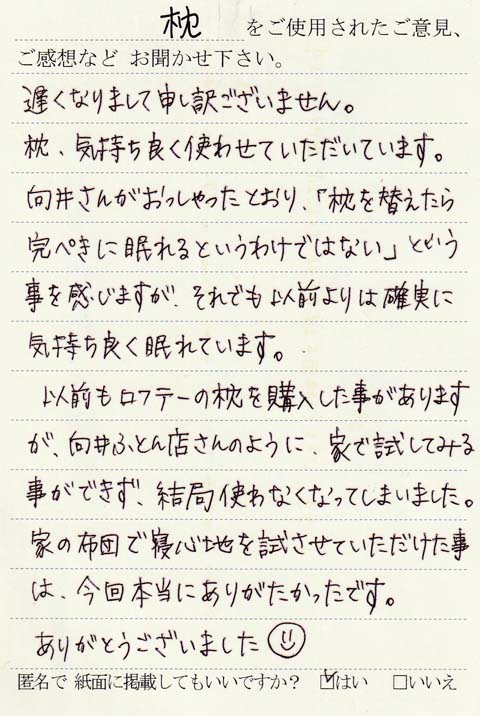 枕 をご使用されたご意見、
ご感想など お聞かせ下さい。
遅くなりまして申し訳ございません。
枕、気持ち良く使わせていただいています。
向井さんがおっしゃったとおり、「枕を替えたら
完ぺきに眠れるというわけではない」という
事を感じますが、それでも以前よりは確実に
気持ち良く眠れています。
以前もロフテーの枕を購入した事があります
が、向井ふとん店さんのように、家で試してみる
事ができず、結局使わなくなってしまいました。
家の布団で寝心地を試させていただけた事
は、今回本当にありがたかったです。
ありがとうございました
匿名で 紙面に掲載してもいいですか? ☑はい □いいえ